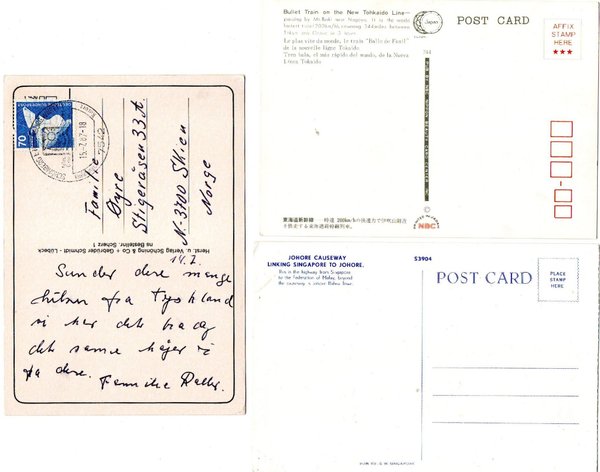 70
15.-7.87-18
7542
Familie
Øyre
Stigeråsen 33A
N-3700 Skien
Norge
Horst. u. Verlag Schöning & Co + Gebrüder Schmidt · Lübeck
Bestellnr. Scherz 1
14.7.
Sender dere mange
hilsen fra Tyskland
vi har det bra og
det samme håper vi
på dere.
Familie
Bullet Train on the New Tohkaido Line—
passing by Mt. Ibuki near Nagoya. It is the world
fastest train
Tokyo and Osaka in 3 hours
Le plus vite du monde, le train "Balle de Fusil"
de la nouvelle ligne Tokaido
Tren bala, el más rápido del mundo, de la Nueva
Línea Tokaido
Japan
POST CARD
AFFIX
STAMP
HERE
東海道新幹線 ─ 時速 200km/hの快速力で伊吹山麓附近
を快走する東海道新幹線列車。
NBC
JOHORE CAUSEWAY
LINKING SINGAPORE TO JOHORE.
This is the highway from Singapore
to the Federation of Malay, beyond
the causeway is Johore Bahru Town.
S3904
POST CARD
PLACE
STAMP
HERE